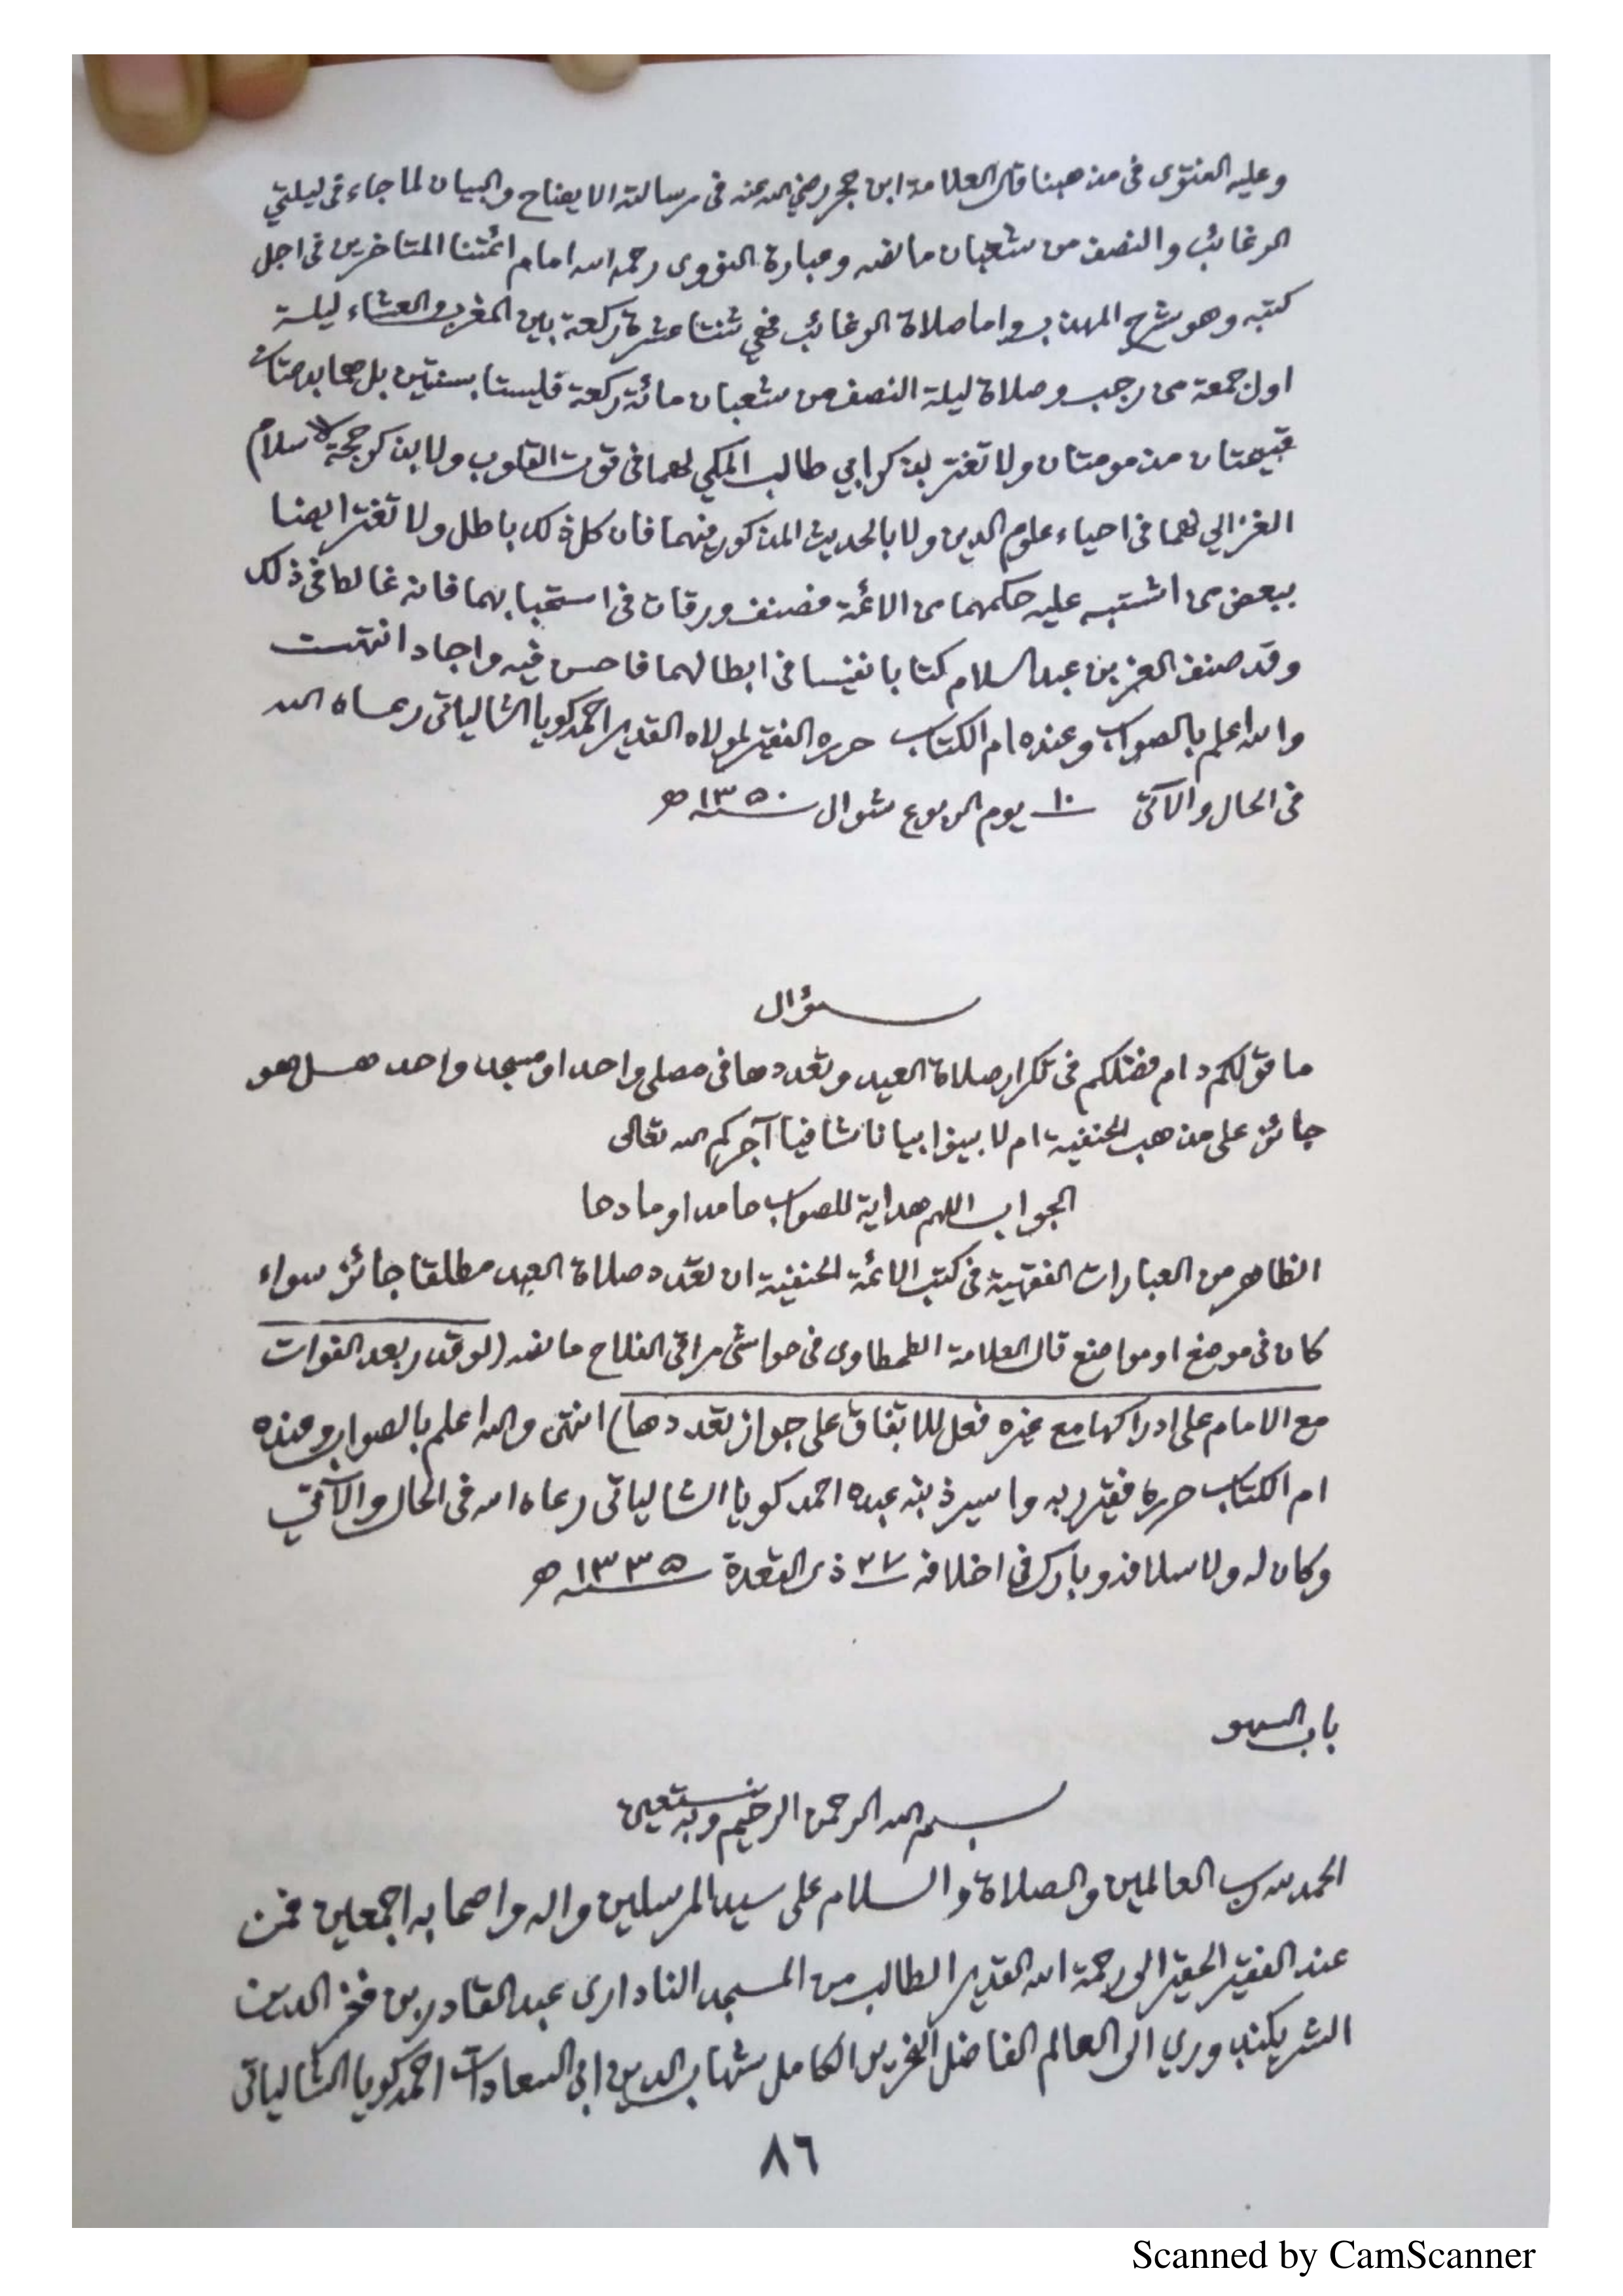 وعليه الفتوى فى مذهبنا قال العلامة ابن حجر رضي الله عنه فى رسالته الايضاح والبيان لما جاء فى ليلتي
الرغائب والنصف من شعبان ما نصه وعبارة النووى رحمه الله امام ائمتنا المتاخرين فى اجل
كتبه وهو شرح المهذب واما صلاة الرغائب فهي ثنتا عشرة ركعة بين المغرب والعشاء ليلة
اول جمعة من رجب وصلاة ليلة النصف من شعبان مائة ركعة فليستا بسنتين بل هما بدعتان
قبيحتان مذمومتان ولا تغتر بذكر ابي طالب المكي لهما فى قوت القلوب ولا بذكر حجة الاسلام
الغزالي لهما فى احياء علوم الدين ولا بالحديث المذكور فيهما فان كل ذلك باطل ولا تغتر ايضا
ببعض من اشتبه عليه حكمهما من الائمة فصنف ورقات فى استحبابهما فانه غالط فى ذلك
وقد صنف العز بن عبد السلام كتابا نفيسا فى ابطالهما فاحسن فيه واجاد انتهت
والله اعلم بالصواب وعنده ام الكتاب حرره الفقير لمولاه القدير احمد كويا الشالياتى رعاه الله
فى الحال والآتى ١٠ يوم الربوع شوال سنة ١٣٥٠ ھ
سؤال
ما قولكم دام فضلكم فى تكرار صلاة العيد وتعددها فى مصلى واحد او مسجد واحد هل هو
جائز على مذهب الحنفية ام لا بينوا بيانا شافيا آجركم الله تعالى
الجواب اللهم هداية للصواب حامدا ومادحا
الظاهر من العبارات الفقهية فى كتب الائمة الحنفية ان تعدد صلاة العيد مطلقا جائز سواء
كان فى موضع او مواضع قال العلامة الطحطاوى فى حواشى مراقى الفلاح ما نصه (لو قدر بعد الفوات
مع الامام على ادراكها مع غيره فعل للاتفاق على جواز تعددها) انتهى والله اعلم بالصواب وعنده
ام الكتاب حرره فقير ربه واسير ذنبه عبده احمد كويا الشالياتى رعاه الله فى الحال والآتى
وكان له ولاسلافه وبارك فى اخلافه ٢٧ ذى القعدة سنة ١٣٣٥ ھ
باب السهو
بسم الله الرحمن الرحيم وبه نستعين
الحمد لله رب العالمين والصلاة والسلام على سيد المرسلين واله واصحابه اجمعين فمن
عند الفقير الحقير الى رحمة الله القدير الطالب من المسجد النادارى عبد القادر بن فخر الدين
الشريكندوري الى العالم الفاضل النحرير الكامل شهاب الدين ابى السعادات احمد كويا الشالياتى
٨٦
Scanned by CamScanner